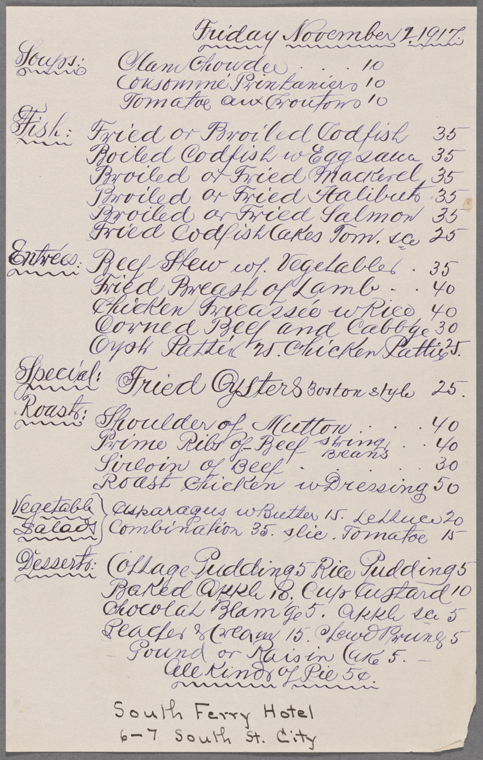 Friday November 2 1917.
Soups: Clam Chowder .... 10
Consommé Printaniers 10
Tomatoe aux Croutons 10
Fish: Fried or Broiled Codfish 35
Boiled Codfish w Egg sauce 35
Broiled or Fried Mackerel 35
Broiled or Fried Halibut 35
Broiled or Fried Salmon 35
Fried Codfish Cakes Tom. sce 25
Entrées: Beef Stew wf. Vegetables . 35
Fried Breast of Lamb .. 40
Chicken Fricassée w Rice 40
Corned Beef and Cabbge 30
Oyst Pattie 25. Chicken Pattie 25.
Special: Fried Oysters Boston style 25.
Roast: Shoulder of Mutton .... 40
Prime Ribs of Beef string beans .. 40
Sirloin of Beef ..... 30
Roast Chicken w Dressing 50
Vegetable Asparagus w Butter 15. Lettuce 20
Salads Combination 35. slic. Tomatoe 15
Desserts: Cottage Pudding 5 Rice Pudding 5
Baked Apple 10. Cup Custard 10
Chocolat Blamge 5. Apple sce 5
Peaches & Cream 15. Stewd Prunes 5
Pound or Raisin Cake 5. –
All Kinds of Pie 5¢.
South Ferry Hotel
6-7 South St. City